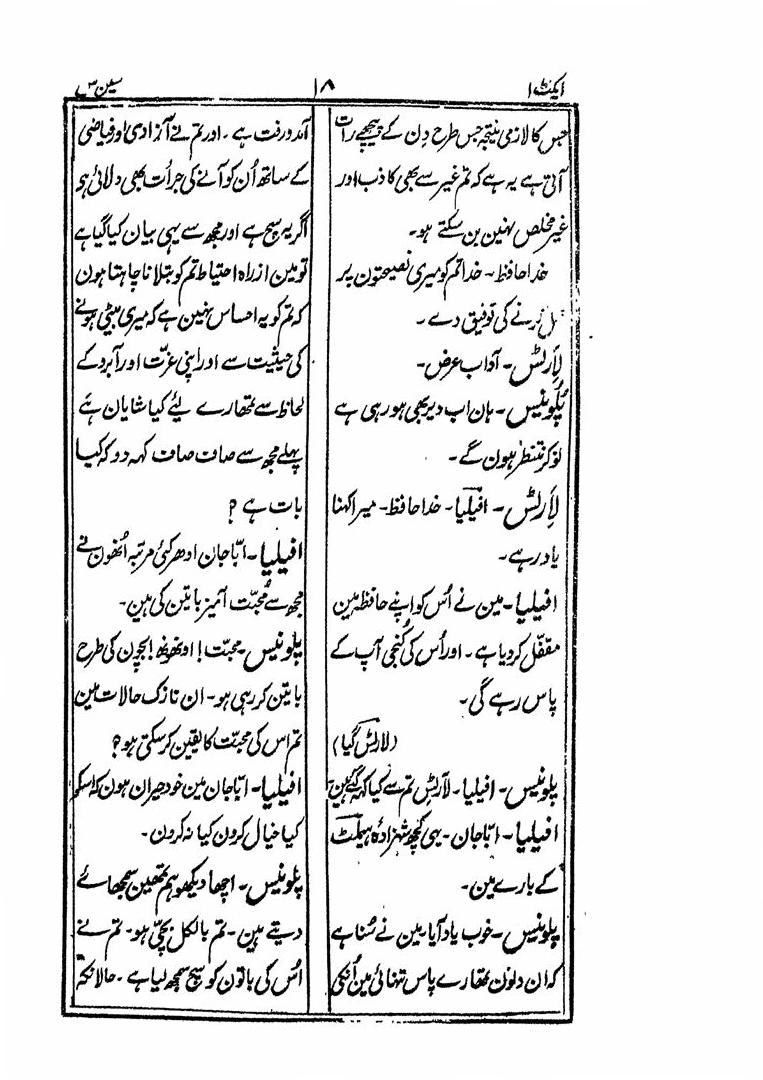 ایکٹ ۱
۱۸
سین ۳
جس کا لازمی نتیجہ جس طرح دِن کے پیچھے رات
آتی ہے یہ ہے کہ تم غیر سے بھی کاذب اور
غیر مخلص نہین بن سکتے ہو۔
خدا حافظ۔ خدا تم کو میری نصیحتون پر
کرنے کی توفیق دے۔
لارٹس۔ آداب عرض۔
پلونیس۔ ہان اب دیر بھی ہو رہی ہے
نوکر منتظر ہون گے۔
لارٹس۔ افیلیا۔ خدا حافظ۔ میرا کہنا
یاد رہے۔
افیلیا۔ مین نے اُس کو اپنے حافظہ مین
مقفّل کر دیا ہے۔ اور اُس کی کُنجی آپ کے
پاس رہے گی۔
(لارٹس گیا)
پلونیس۔ افیلیا۔ لارٹس تم سے کیا کہہ گئے ہین
افیلیا۔ ابّا جان۔ یہی کچھ شہزادہ ہیملٹ
کے بارے مین۔
پلونیس۔ خوب یاد آیا۔ مین نے سُنا ہے
کہ ان دلون تمھارے پاس تنہائی مین اُنکی
آمد و رفت ہے۔ اور تم نے آزادی اور فیاضی
کے ساتھ اُن کو آنے کی جرأت بھی دلائی ہو
اگر یہ سچ ہے اور مجھ سے یہی بیان کیا گیا ہے
تو مین از راہ احتیاط تم کو بتلانا چاہتا ہون
کہ تم کو یہ احساس نہین ہے کہ میری بیٹی ہونے
کی حیثیت سے اور اپنی عزّت اور آبرو کے
لحاظ سے تمھارے لیٔے کیا شایان ہے
پہلے مجھ سے صاف صاف کہہ دو کہ کیا
بات ہے ؟
افیلیا۔ ابّا جان ادھر کئی مرتبہ اُنھون نے
مجھ سے مُحبّت آمیز باتین کی ہین۔
پلونیس۔ محبّت ! اونھونھ ! بچون کی طرح
باتین کر رہی ہو۔ ان نازک حالات مین
تم اس کی محبّت کا یقین کر سکتی ہو ؟
افیلیا۔ ابّا جان مین خود حیران ہون کہ اسکو
کیا خیال کرون کیا نہ کرون۔
پلونیس۔ اچھا دیکھو ہم تمھین سمجھائے
دیتے ہین۔ تم بالکل بچّی ہو۔ تم نے
اُس کی باتون کو سچ سمجھ لیا ہے۔ حالانکہ